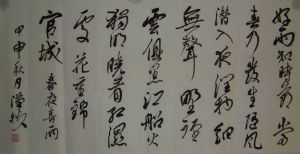 好雨知時節當
春乃發生隨風
潛入夜潤物細
無聲野徑
雲俱黑江船火
獨明曉看紅濕
處花重錦
官城 春夜喜雨
甲申秋月